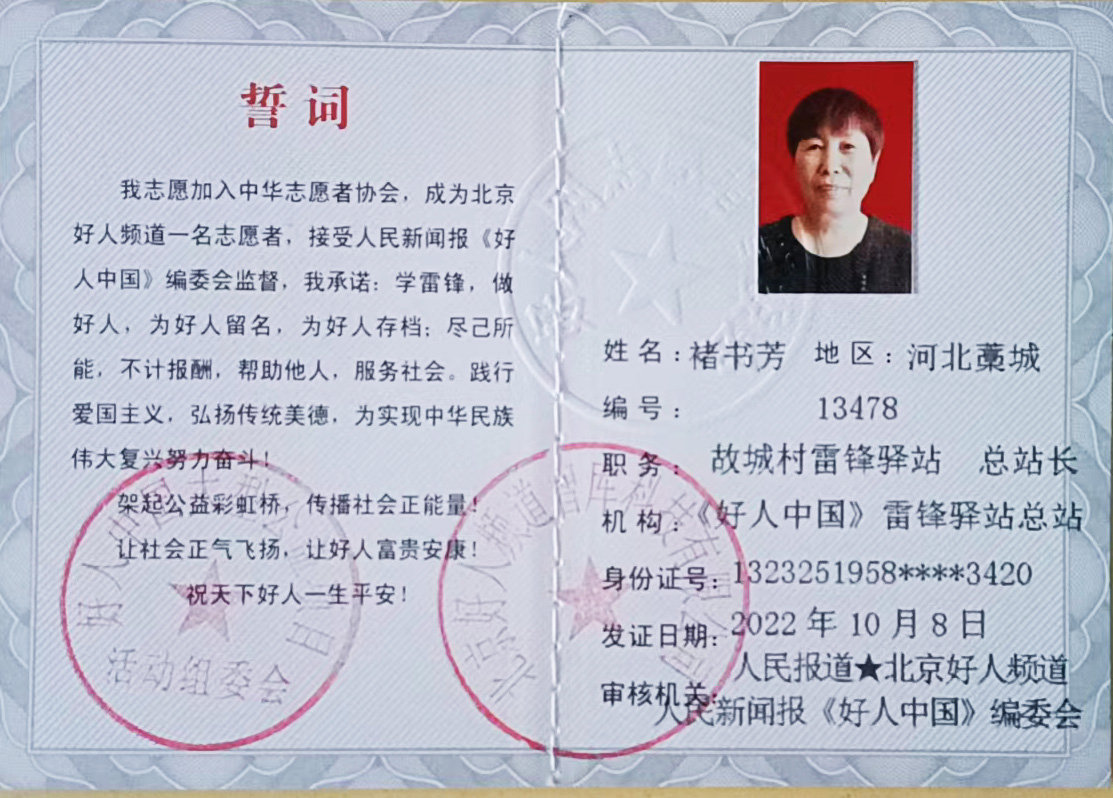 誓词
我志愿加入中华志愿者协会，成为北京
好人频道一名志愿者，接受人民新闻报《好
人中国》编委会监督，我承诺：学雷锋，做
好人，为好人留名，为好人存档；尽己所
能，不计报酬，帮助他人，服务社会。践行
爱国主义，弘扬传统美德，为实现中华民族
伟大复兴努力奋斗！
架起公益彩虹桥，传播社会正能量！
让社会正气飞扬，让好人富贵安康！
祝天下好人一生平安！
活动组委会
姓名：褚书芳 地区：河北藁城
编号：13478
职务：故城村雷锋驿站 总站长
机构：《好人中国》雷锋驿站总站
身份证号：1323251958****3420
发证日期：2022年10月8日
审核机关：人民报道★北京好人频道
人民新闻报《好人中国》编委会
北京好人频道智库科技有限公司